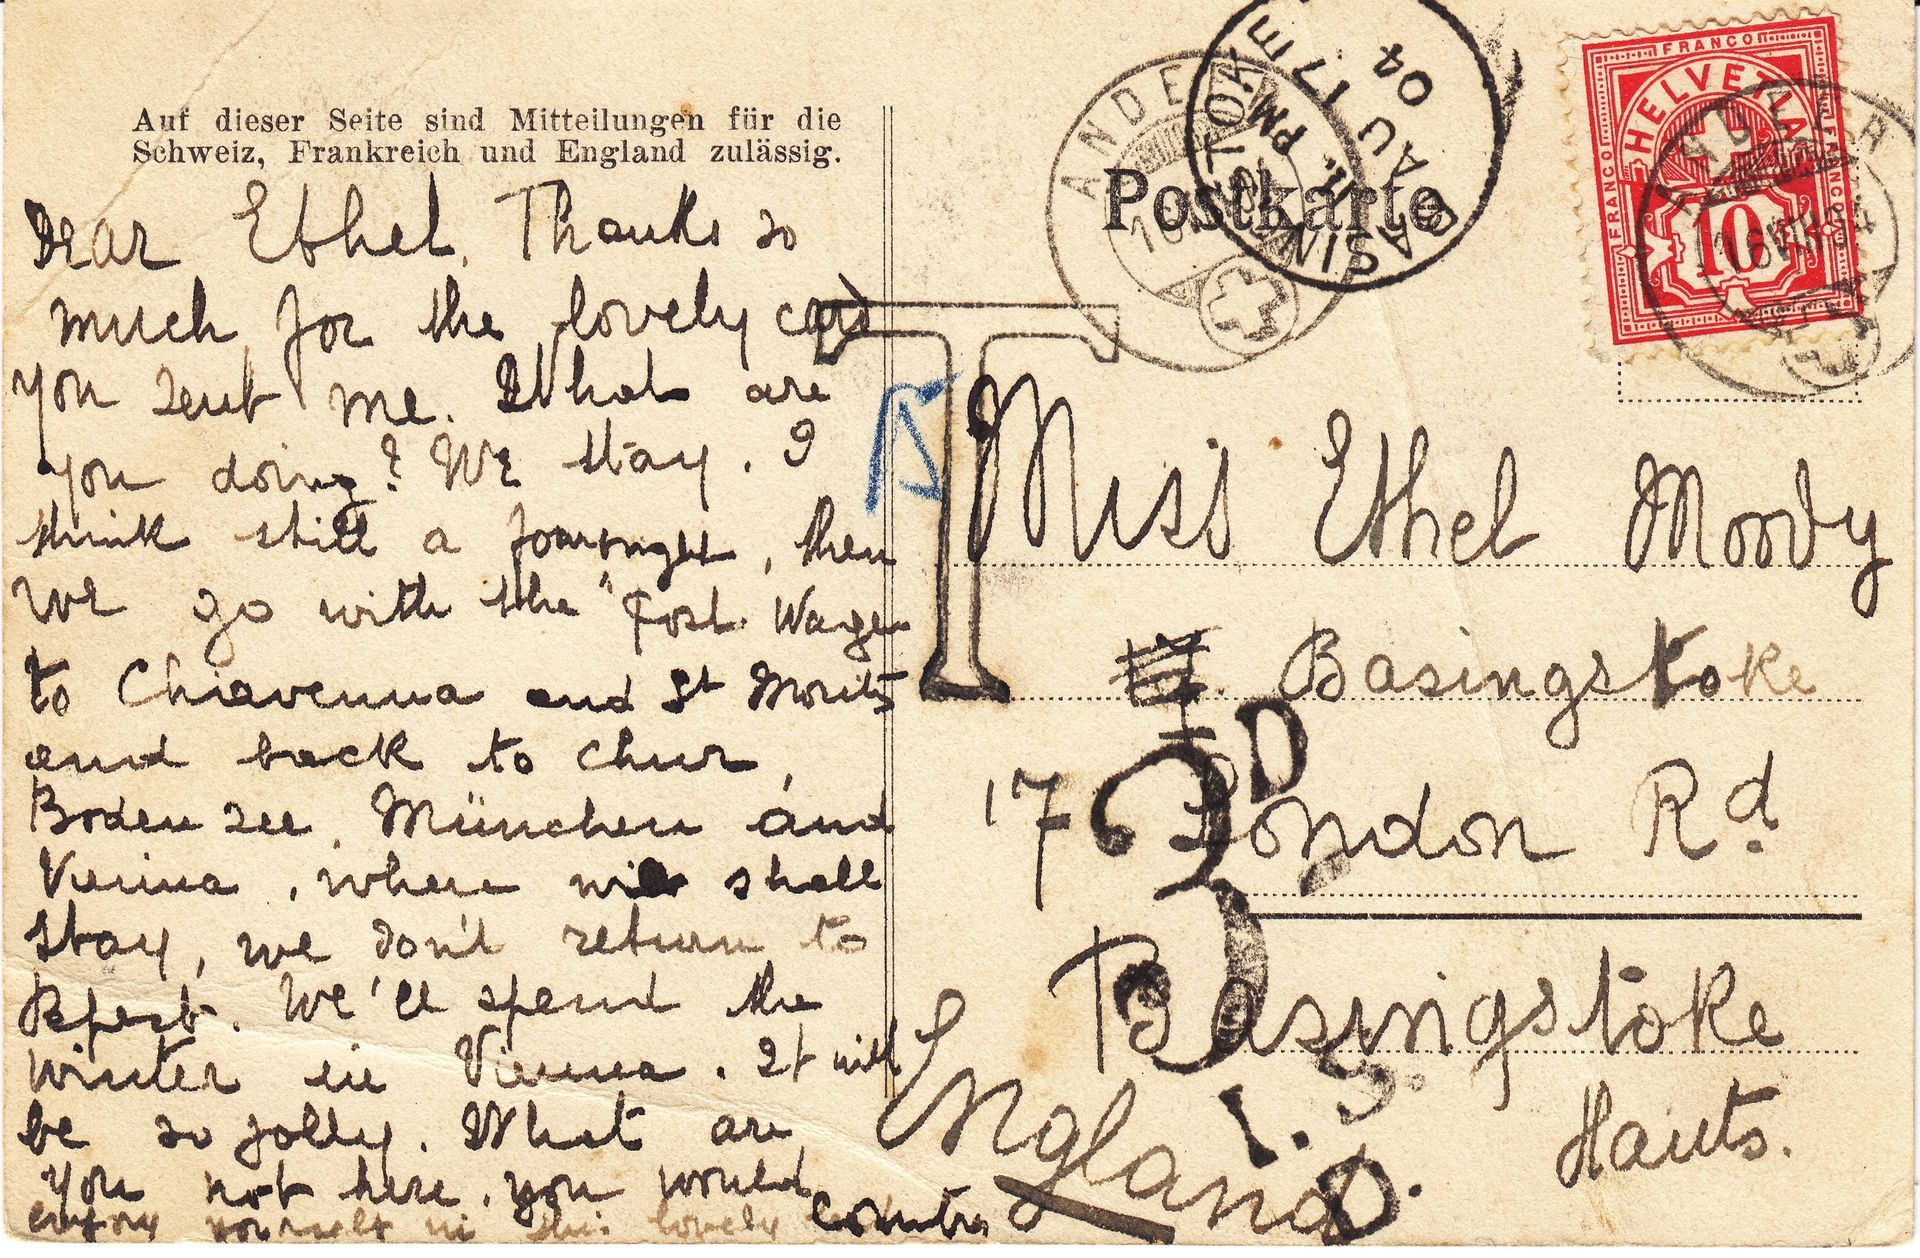 Auf dieser Seite sind Mitteilungen für die
Schweiz, Frankreich und England zulässig.
Dear Ethel, Thanks so
much for the lovely card
you sent me. What are
you doing? We stay. I
think still a, then
we go with the "Post. Wagen
to Chiavenna and St Moritz
and back to Chur,
Bodensee, München and
Vienna, where we shall
stay, we don't return to
We'll spend the
winter in Vienna. It will
be so jolly. What are
you not here, you would
enjoy yourself in this lovely country
Postkarte
ANDEER
BASINGSTOKE
PM
AU 17
04
FRANCO
HELVETIA
FRANCO
FRANCO
10
ANDEER
16 VIII 04
T
Miss Ethel Moody
Basingstoke
17 London Rd.
Basingstoke
Hants.
England
3D
I.S.D.